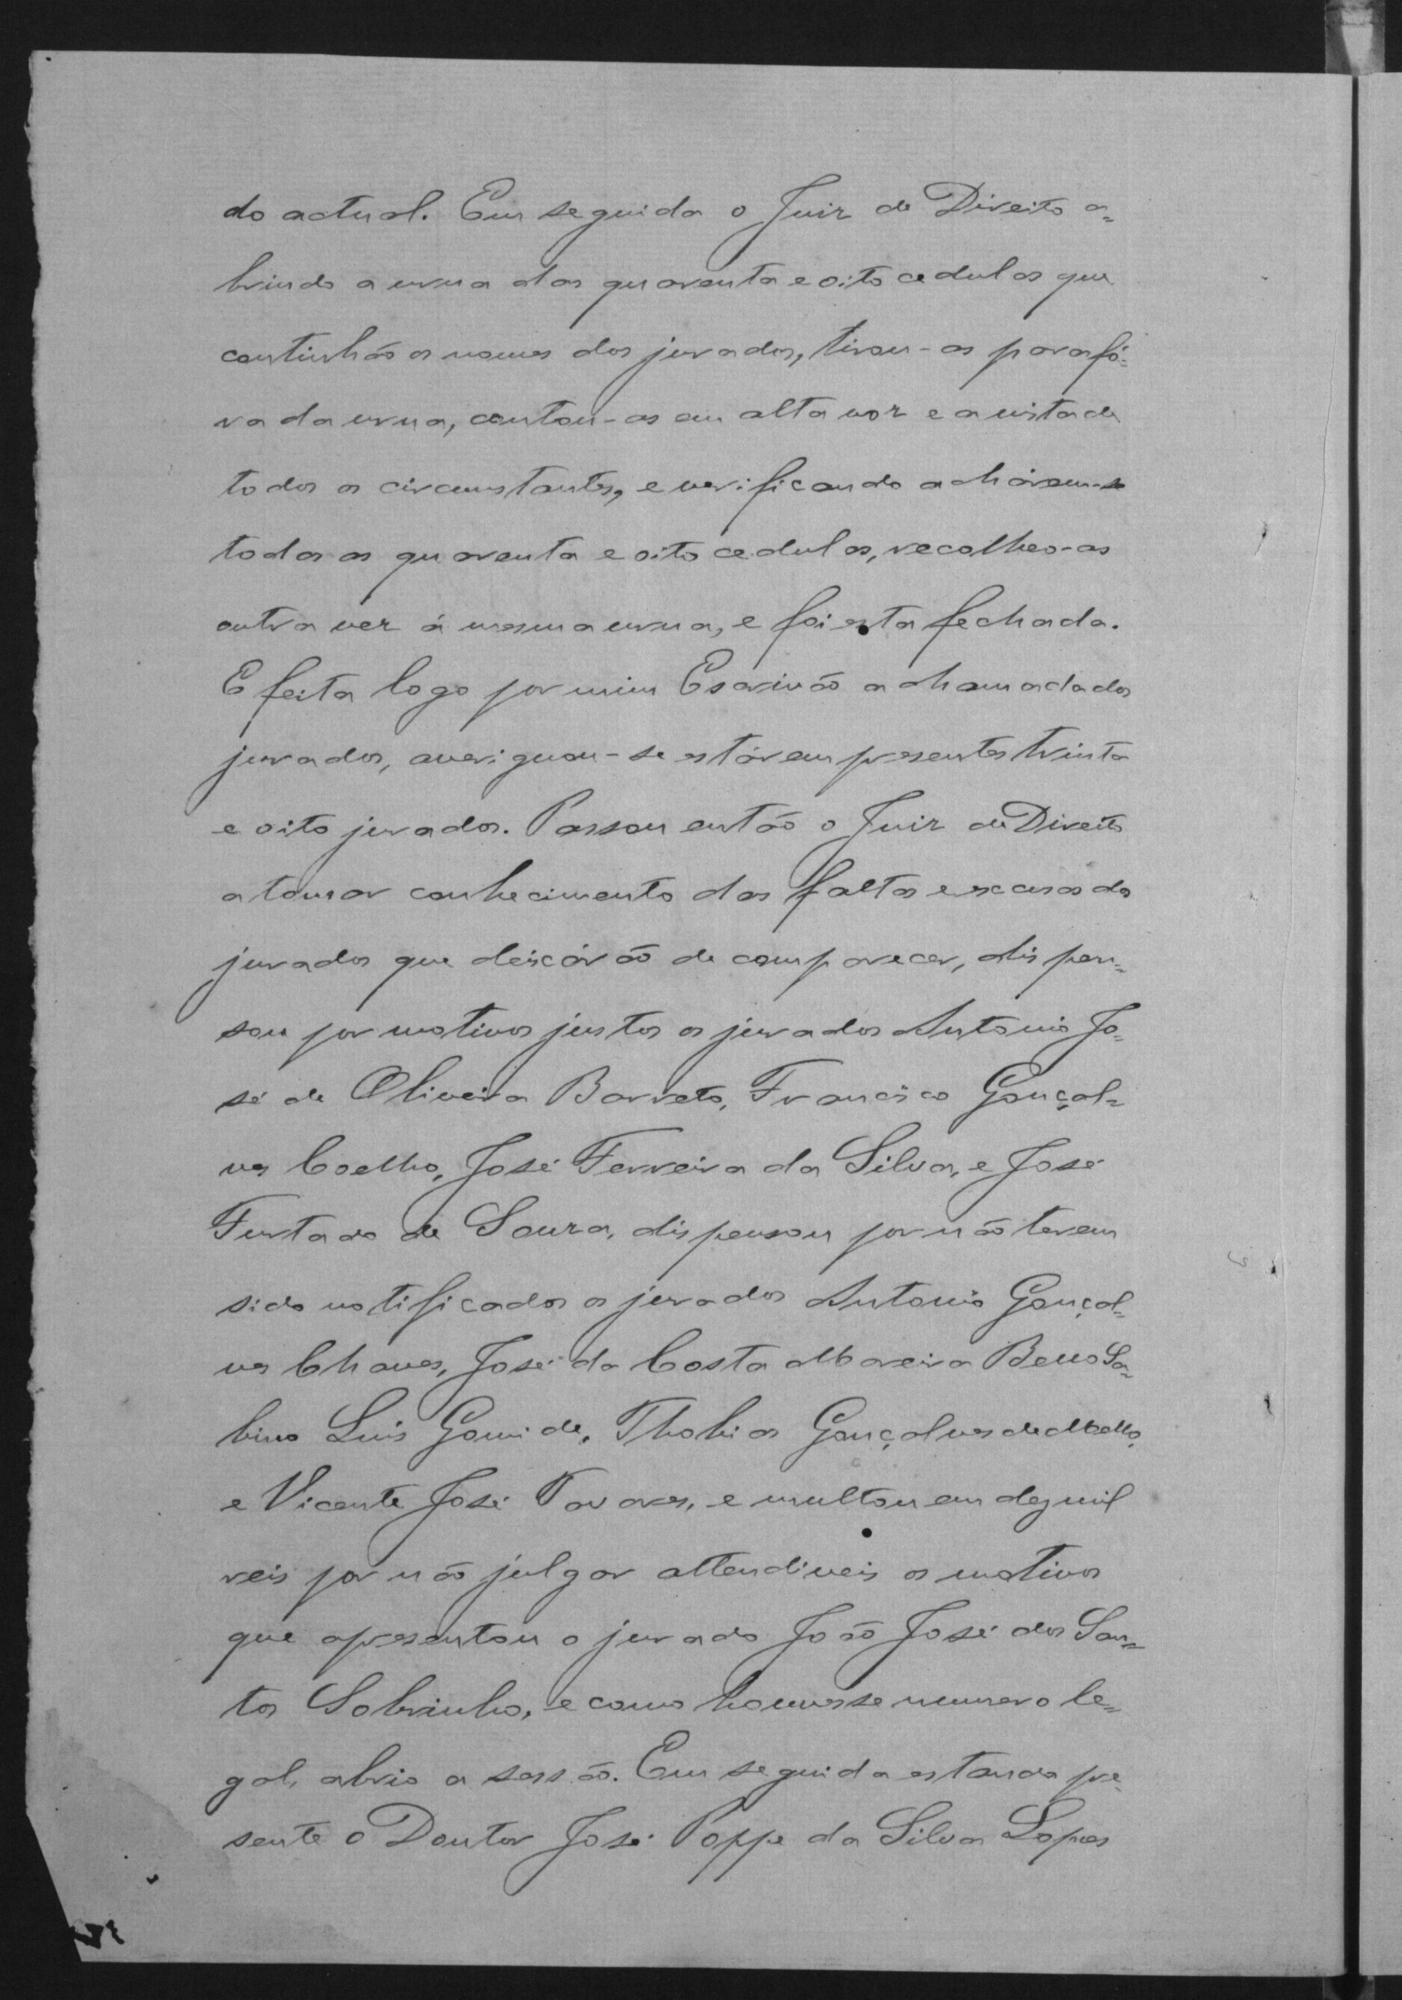 do actual. Em seguida o Juiz de Direito a=
brindo a urna das quarenta e oito cedulas que
continhão os nomes dos jurados, tirou-as para fó=
ra da urna, contou-as em alta voz e a vista de
todos os circumstantes, e verificando acháram-se
todas as quarenta e oito cedulas, recolheo-as
outra vez á mesma urna, e foi esta fechada.
E feita logo por mim Escrivão a chamada dos
jurados, averiguou-se estárem presentes trinta
e oito jurados. Passou então o Juiz de Direito
a tomar conhecimento das faltas e escusas dos
jurados que deixárão de comparecer, dispen=
sou por motivos justos os jurados Antonio Jo=
sé de Oliveira Barreto, Francisco Gonçal=
ves Coelho, José Ferreira da Silva, e José
Furtado de Souza, dispensou por não terem
sido notificados os jurados Antonio Gonçal=
ves Chaves, José da Costa Moreira Senna Sa=
bino Luis Gomide, Thobias Gonçalves de Mello,
e Vicente José Tavares, e multou em dez mil
reis por não julgar attendiveis os motivos
que apresentou o jurado João José dos San=
tos Sobrinho, e como houvesse numero le=
gal, abrio a sessão. Em seguida estando pre=
sente o Doutor José Poppe da Silva Lopes